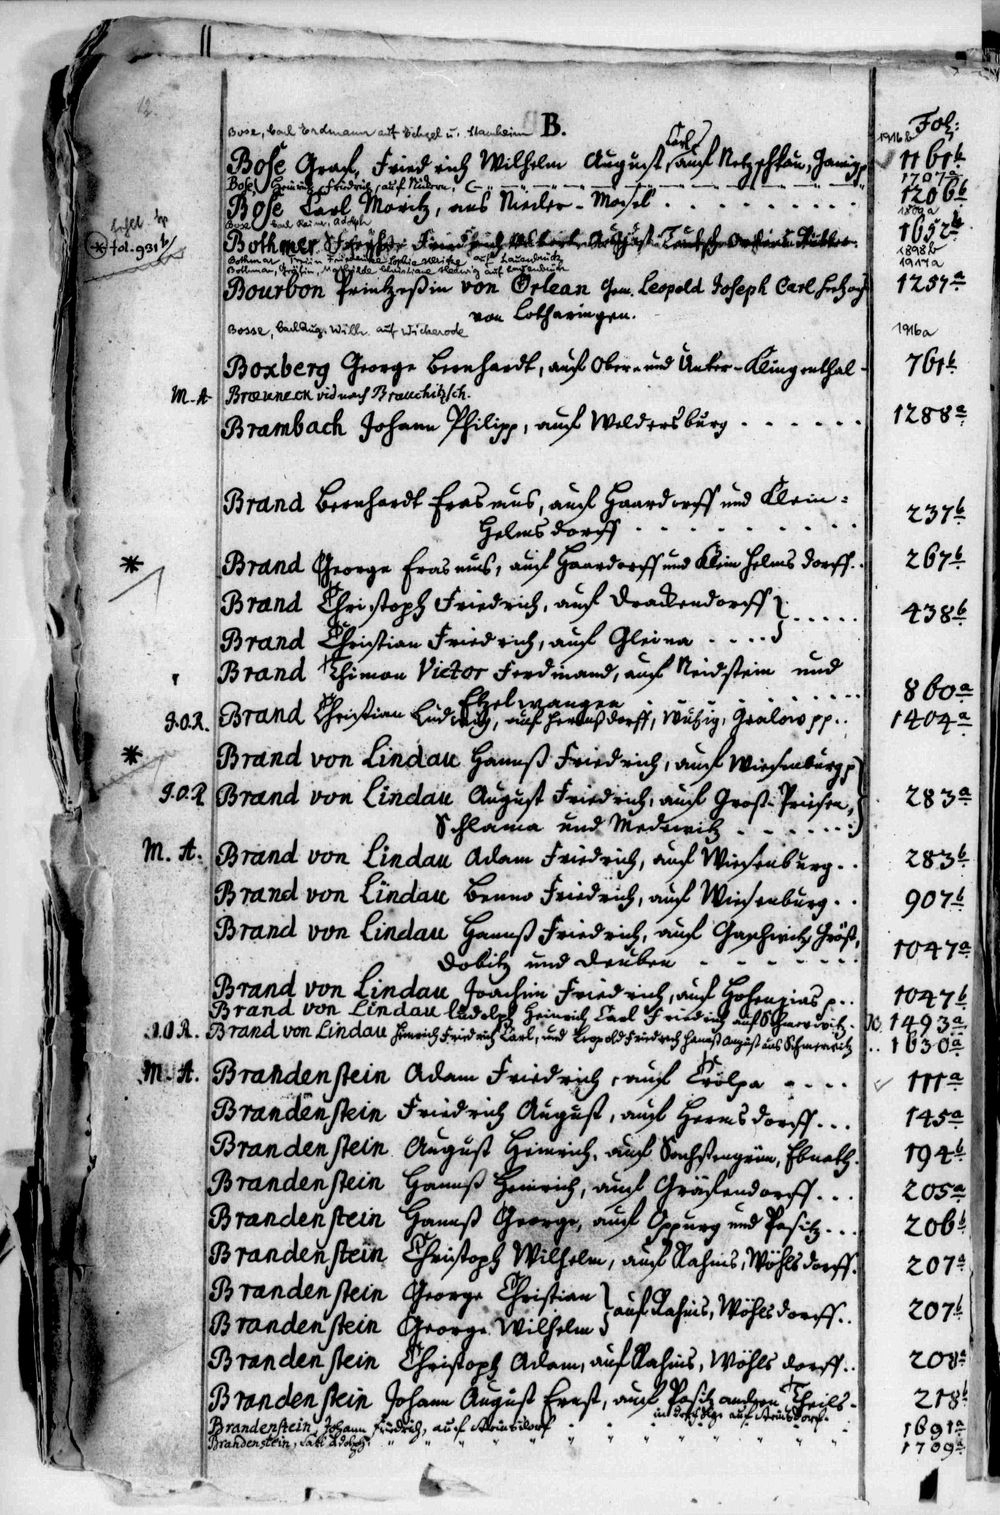 12.
B.
Fol:
Bose, Carl Erdmann auf Schgel u. Manheim 1916 b
Carl
Bose Graf, Friedrich Wilhelm August, auf Netzschkau, 1161 b
Bose, Heinrich Friedrich, auf Nickern, 1707 a
Bose Carl Moritz, aus Nieder-Mosel 1206 b
Bose, Carl Adolph 1809 a
fol. 931 b
Bothmer 1652 b
Bothmar, Friederike Sophie Ulrike auf Lauenbrück 1898 b
Bothmar, Gräfin, Mathilde Christiane Hedwig auf 1917 a
Bourbon Printzeßin von Orlean Gem. Leopold Joseph Carl Hertzog 1257 a
von Lotharingen.
Bosse, Carl Aug. Wilh. auf Wickerode 1916 a
Boxberg George Bernhardt, auf Ober- und Unter-Klingenthal 761 b
M. A. Brauneck vid nach Brauchitzsch.
Brambach Johann Philipp, auf Weldersburg 1288 a
Brand Bernhardt Erasmus, auf Haardorff und Klein=
Helmsdorff 237 b
* Brand George Erasmus, auf Haardorff und Klein Helmsdorff. 267 b
Brand Christoph Friedrich, auf Drackendorff 438 b
Brand Christian Friedrich, auf Gleina
Brand Thimon Victor Ferdinand, auf Neidstein und
Etzelwangen 860 a
J.O.R. Brand Christian Ludwig, auf Hermßdorff, Wutzig, Gralow pp. 1404 a
* Brand von Lindau Hannß Friedrich, auf Wiesenburg p
J.O.R. Brand von Lindau August Friedrich, auf Groß-Priesen, 283 a
Schlaina und Mederitz
M. A. Brand von Lindau Adam Friedrich, auf Wiesenburg. 283 b
Brand von Lindau Benno Friedrich, auf Wiesenburg. 907 b
Brand von Lindau Hannß Friedrich, auf Gaschwitz, Groß-
Dobitz und Deuben 1047 a
Brand von Lindau Joachim Friedrich, auf Hohenzias p. 1047 b
Brand von Lindau Ludolph Heinrich Carl Friedrich auf Schmerwitz. 1493 a
J.O.R. Brand von Lindau Heinrich Friedrich Carl, und Leopold Friedrich Hannß August aus Schmerwitz 1630 a
M. A. Brandenstein Adam Friedrich, auf Crölpa 111 a
Brandenstein Friedrich August, auf Hermsdorff 145 a
Brandenstein August Heinrich, auf Sachßengrün, Ebnath. 194 b
Brandenstein Hannß Heinrich, auf Gräfendorff 205 a
Brandenstein Hannß George, auf Oppurg und Positz 206 b
Brandenstein Christoph Wilhelm, auf Rahnis, Wöhlsdorff. 207 a
Brandenstein George Christian
auf Rahnis, Wöhlsdorff. 207 b
Brandenstein George Wilhelm
Brandenstein Christoph Adam, auf Rahnis, Wöhlsdorff. 208 a
Brandenstein Johann August Ernst, auf Positz andern Theils 218 b
Brandenstein, Johann Friedrich, auf 1691 a
Brandenstein, Carl Adolph 1709 a